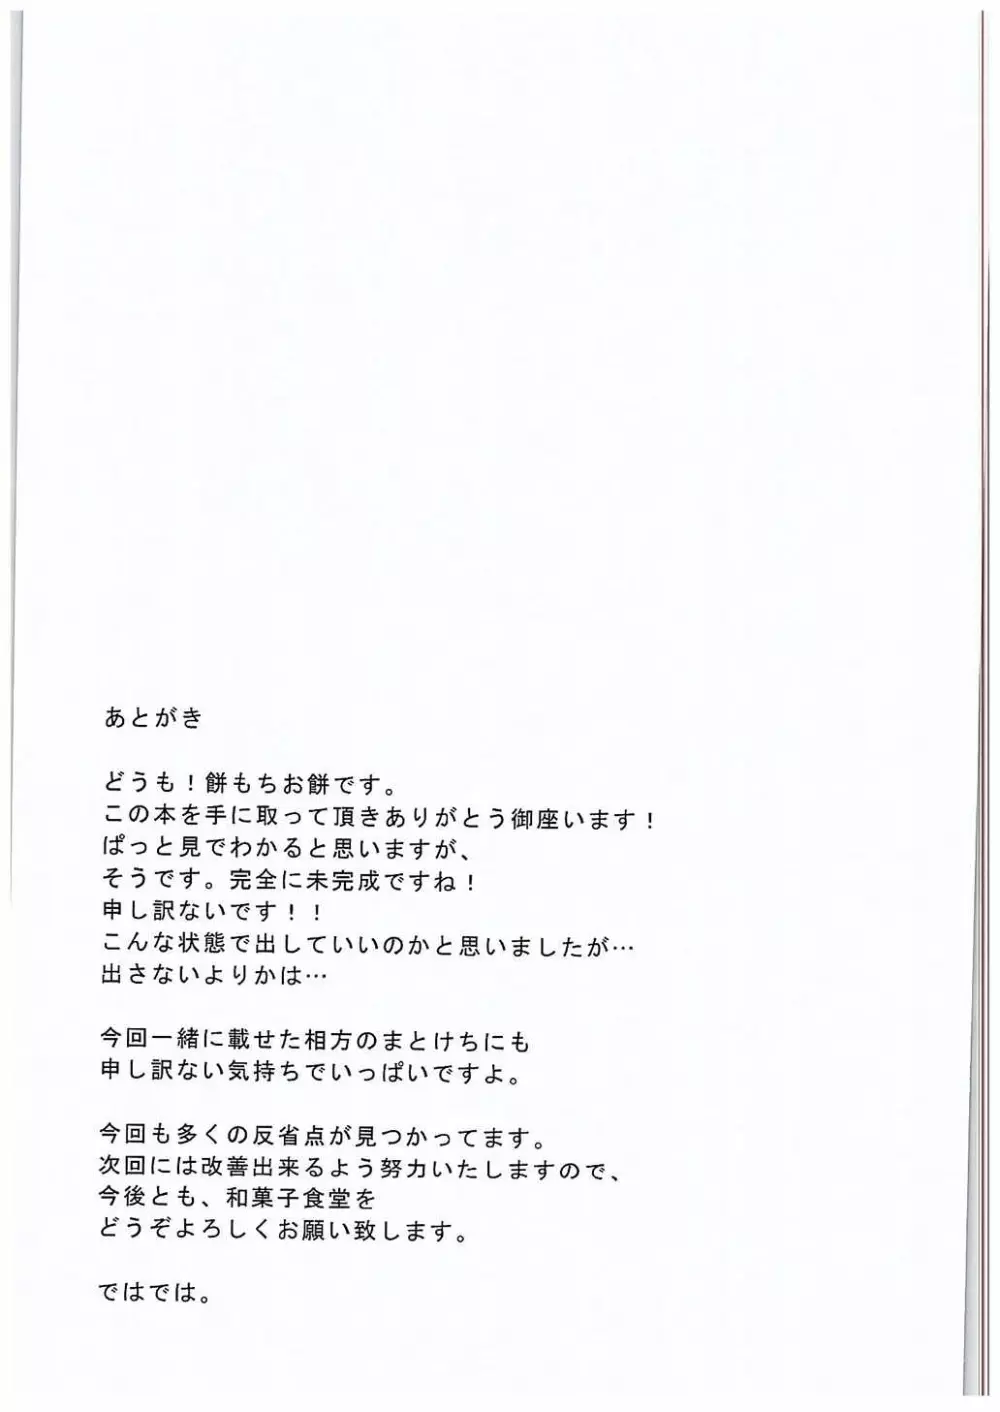 あとがき
どうも！餅もちお餅です。
この本を手に取って頂きありがとう御座います！
ぱっと見でわかると思いますが、
そうです。完全に未完成ですね！
申し訳ないです！！
こんな状態で出していいのかと思いましたが…
出さないよりかは…
今回一緒に載せた相方のまとけちにも
申し訳ない気持ちでいっぱいですよ。
今回も多くの反省点が見つかってます。
次回には改善出来るよう努力いたしますので、
今後とも、和菓子食堂を
どうぞよろしくお願い致します。
ではでは。